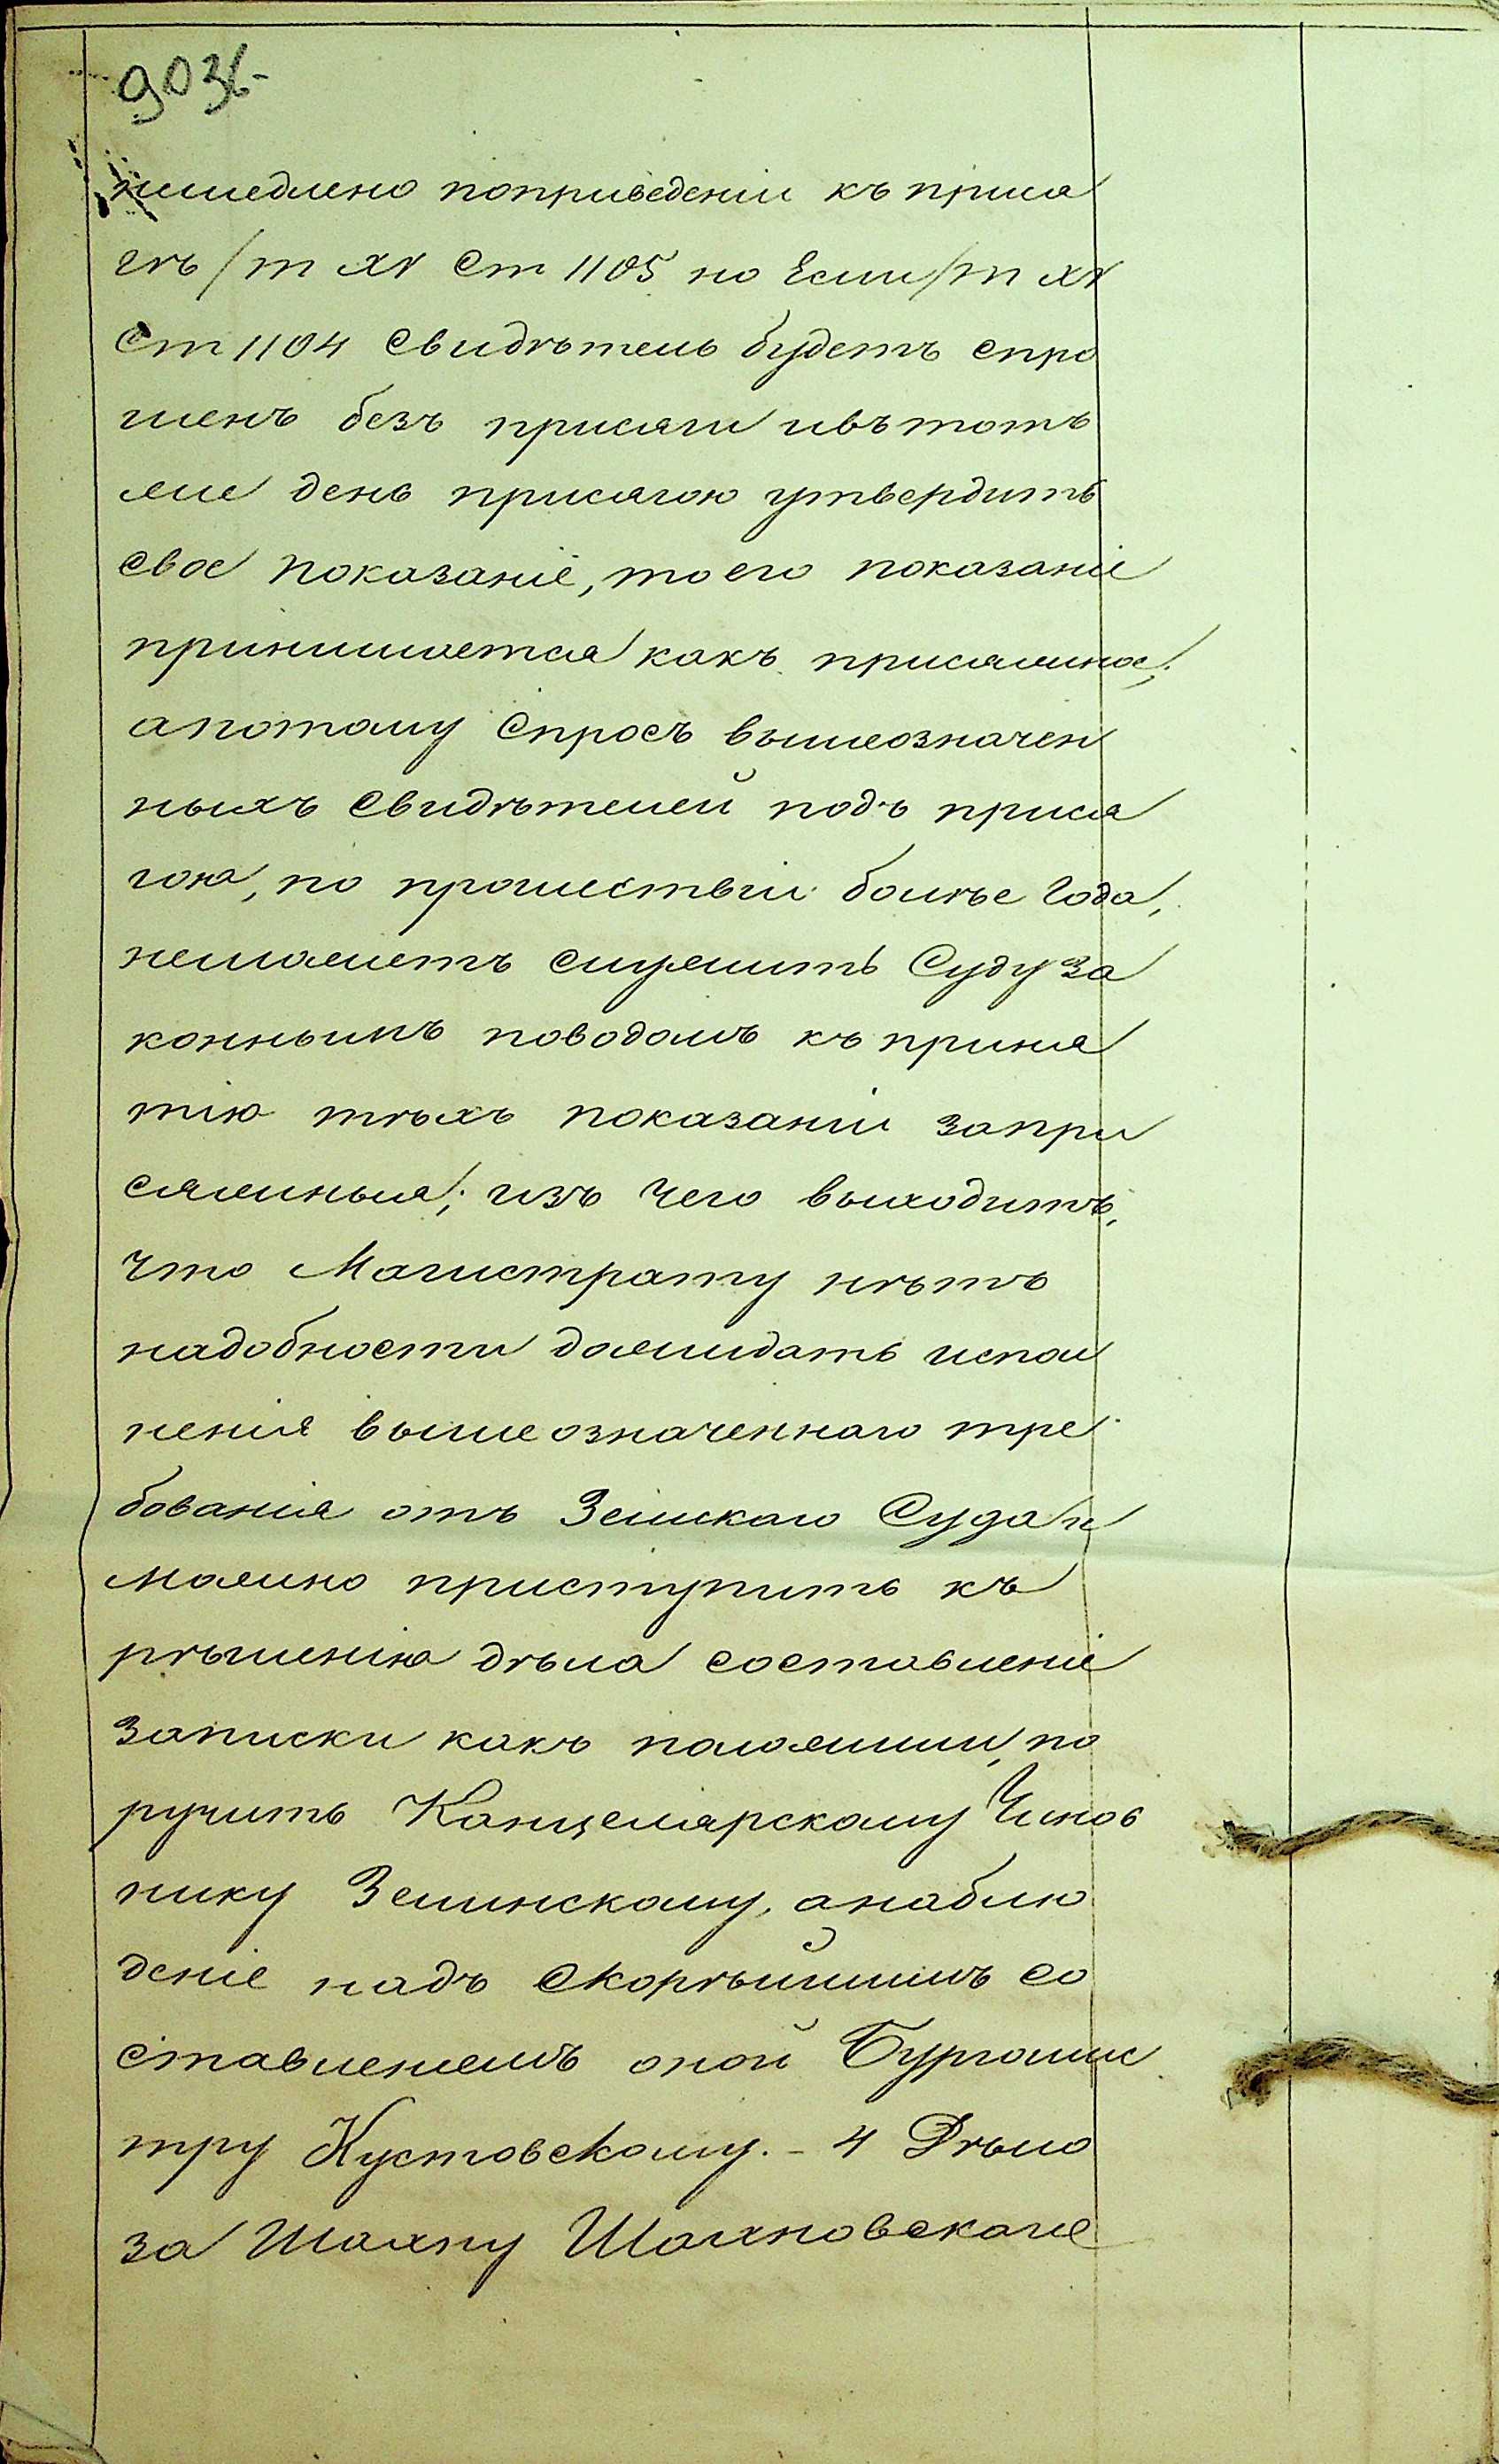 903б-
немедлено поприведеніи къ прися
гѣ /т XV Ст 1105 но Если /т XV
Ст 1104 Свидѣтель будетъ спро
шенъ безъ присяги ивътотъ
же день присягою утвердитъ
Свое показаніе, то его показаніе
принимается какъ присяжное;
апотому Спросъ вышеозначен
ныхъ Свидѣтелей подъ прися
гою, по прошествіи болѣе Года,
неможетъ служить Суду за
коннымъ поводомъ къ приня
тію тѣхъ показаніи запри
сяжныя; изъ чего выходитъ,
Что Магистрату нѣтъ
надобности дожидать испол
ненія вышеозначеннаго тре
бованія отъ Земскаго Суда и
можно приступить къ
рѣшенію дѣла составленіе
записки какъ полож по
ручить Канцелярскому Чинов
нику Зелинскому, анаблю
деніе надъ Скорѣйшимъ со
ставленіемъ оной Бургомис
тру Кустовскому. - 4 Дѣло
за Шахну Шахновскаге